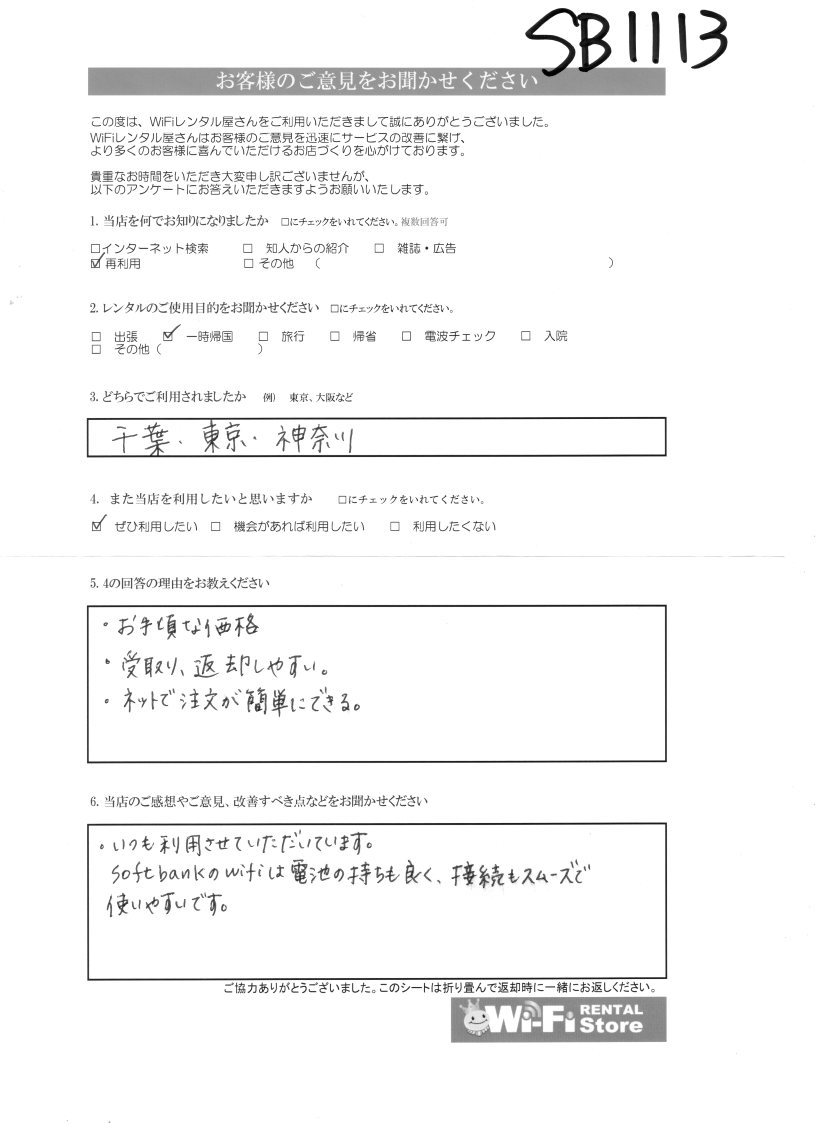 SB1113
お客様のご意見をお聞かせください
この度は、WiFiレンタル屋さんをご利用いただきまして誠にありがとうございました。
WiFiレンタル屋さんはお客様のご意見を迅速にサービスの改善に繋げ、
より多くのお客様に喜んでいただけるお店づくりを心がけております。
貴重なお時間をいただき大変申し訳ございませんが、
以下のアンケートにお答えいただきますようお願いいたします。
1. 当店を何でお知りになりましたか □にチェックをいれてください。複数回答可
□インターネット検索 □ 知人からの紹介 □ 雑誌・広告
☑再利用 □ その他 ( )
2. レンタルのご使用目的をお聞かせください □にチェックをいれてください。
□ 出張 ☑ 一時帰国 □ 旅行 □ 帰省 □ 電波チェック □ 入院
□ その他 ( )
3. どちらでご利用されましたか 例) 東京、大阪など
千葉・東京・神奈川
4. また当店を利用したいと思いますか □にチェックをいれてください。
☑ ぜひ利用したい □ 機会があれば利用したい □ 利用したくない
5. 4の回答の理由をお教えください
・お手頃な価格
・受取り、返却しやすい。
・ネットで注文が簡単にできる。
6. 当店のご感想やご意見、改善すべき点などをお聞かせください
・いつも利用させていただいています。
softbankのwifiは電池の持ちも良く、接続もスムーズで
使いやすいです。
ご協力ありがとうございました。このシートは折り畳んで返却時に一緒にお返しください。
Wi-Fi RENTAL
Store